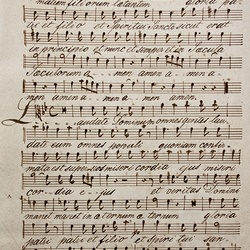 matrem filiorum laetantem gloria pa-
tri et filio et Spiritui Sancto sicut erat
in principio et nunc et semper et in Saecula
Saeculorum a-men amen a-men a-
men amen a-men amen.
Laudate Dominum omnes gentes lau-
date eum omnes populi quoniam confir-
mata est super nos miseri cordia ejus miseri
cor-dia e-jus et veritas Domini
manet manet in aeternum aeternum gloria
patri patri et filio et Spiritui san-